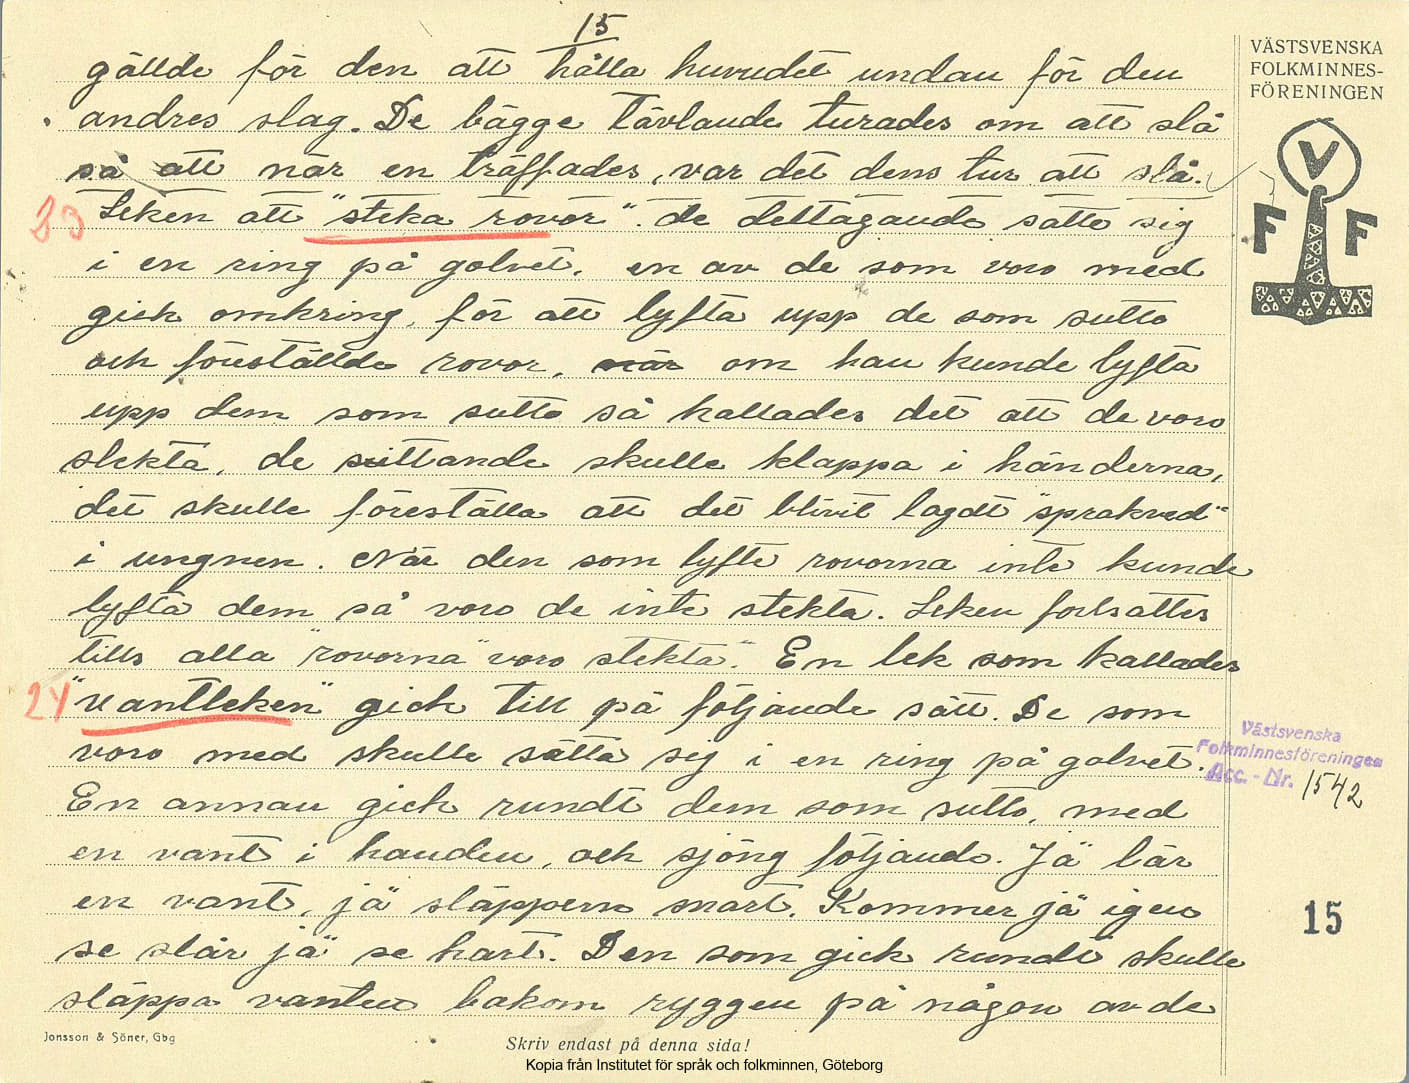 15
gällde för den att hålla huvudet undan för den
andres slag. De bägge tävlande turades om att slå
så att när en träffades, var det dens tur att slå.
23 Leken att "steka rovor". de deltagande satte sig
i en ring på golvet. en av de som voro med
gick omkring, för att lyfta upp de som sutto
och föreställde rovor, när om han kunde lyfta
upp dem som sutto så kallades det att de voro
stekta, de sittande skulle klappa i händerna,
det skulle föreställa att det blivit lagdt "sprakved"
i ungnen. När den som lyfte rovorna inte kunde
lyfta dem så voro de inte stekta. Leken fortsattes
tills alla "rovorna" voro stekta". En lek som kallades
24 "vantleken" gick till på följande sätt. De som
voro med skulle sätta sig i en ring på golvet.
En annan gick rundt dem som sutto, med
en vant i handen, och sjöng följande. Jä bär
en vant, jä släppern snart. Kommer jä igen
se slår jä se hart. Den som gick rundt skulle
släppa vanten bakom ryggen på någon av de
VÄSTSVENSKA
FOLKMINNES-
FÖRENINGEN
V
F F
Västsvenska
Folkminnesföreningen
Acc. - Nr. 1542
15
Jonsson & Söner, Gbg
Skriv endast på denna sida!
Kopia från Institutet för språk och folkminnen, Göteborg